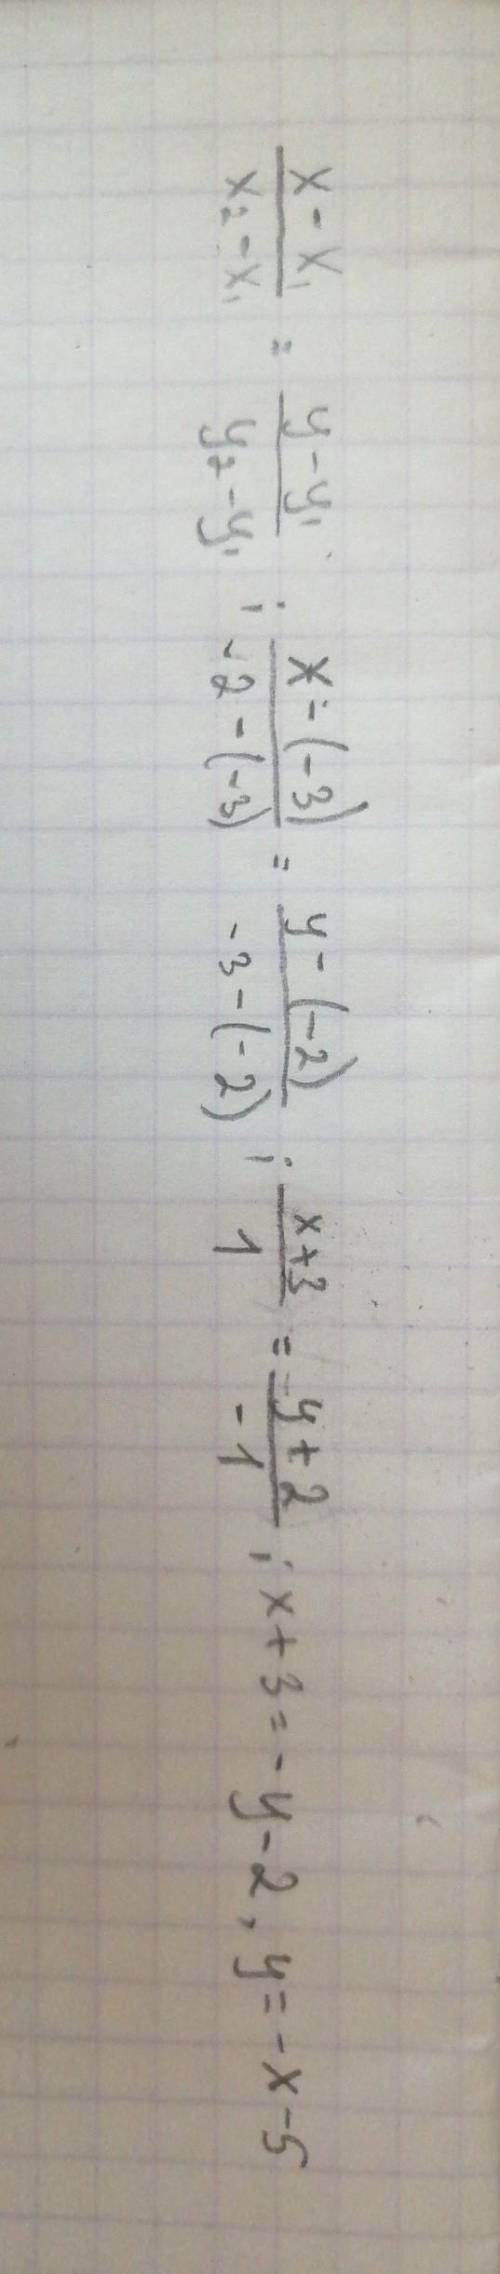 (x - x₁)/(x₂ - x₁) = (y - y₁)/(y₂ - y₁) ; (x - (-3))/(-2 - (-3)) = (y - (-2))/(-3 - (-2)) ; (x+3)/1 = (y+2)/-1 ; x+3 = -y-2, y = -x-5